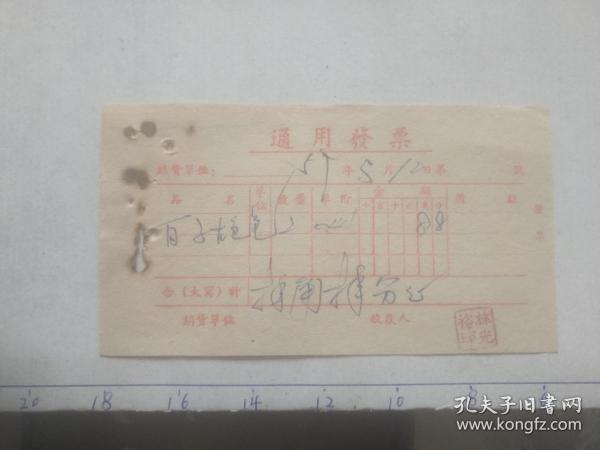 通用發票
購貨單位: 57年5月12日第 號
品名 單位 數量 單价 金額 備註
千百十元角分
百子炮 2 88
合(大寫)計 捌角捌分正
銷貨單位 收款人
林光裕印
發票
20 18 16 14 12 10 8
孔夫子旧書网
www.kongfz.com